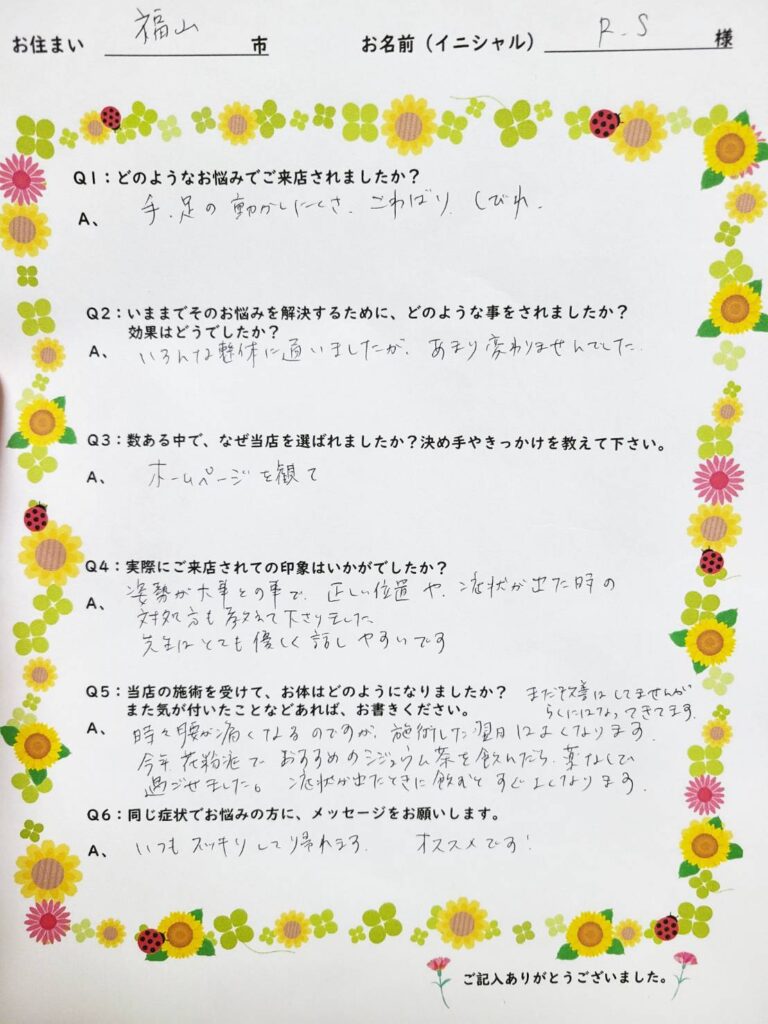 お住まい 福山 市 お名前（イニシャル） R.S 様
Q1：どのようなお悩みでご来店されましたか？
A、 手、足の動かしにくさ、こわばり、しびれ、
Q2：いままでそのお悩みを解決するために、どのような事をされましたか？
効果はどうでしたか？
A、 いろんな整体に通いましたが、あまり変わりませんでした.
Q3：数ある中で、なぜ当店を選ばれましたか？決め手やきっかけを教えて下さい。
A、 ホームページを観て
Q4：実際にご来店されての印象はいかがでしたか？
A、 姿勢が大事との事で、正しい位置や、症状が出た時の
対処方も教えて下さりました
先生はとても優しく話しやすいです
Q5：当店の施術を受けて、お体はどのようになりましたか？
また気が付いたことなどあれば、お書きください。
まだ改善はしてませんが
らくにはなってきてます.
A、 時々腰が痛くなるのですが、施術した翌日にはよくなります.
今年花粉症で おすすめのシジュウム茶を飲んだら、薬なしで
過ごせました。症状が出たときに飲むとすぐよくなります.
Q6：同じ症状でお悩みの方に、メッセージをお願いします。
A、 いつもスッキリして帰れます. オススメです！
ご記入ありがとうございました。